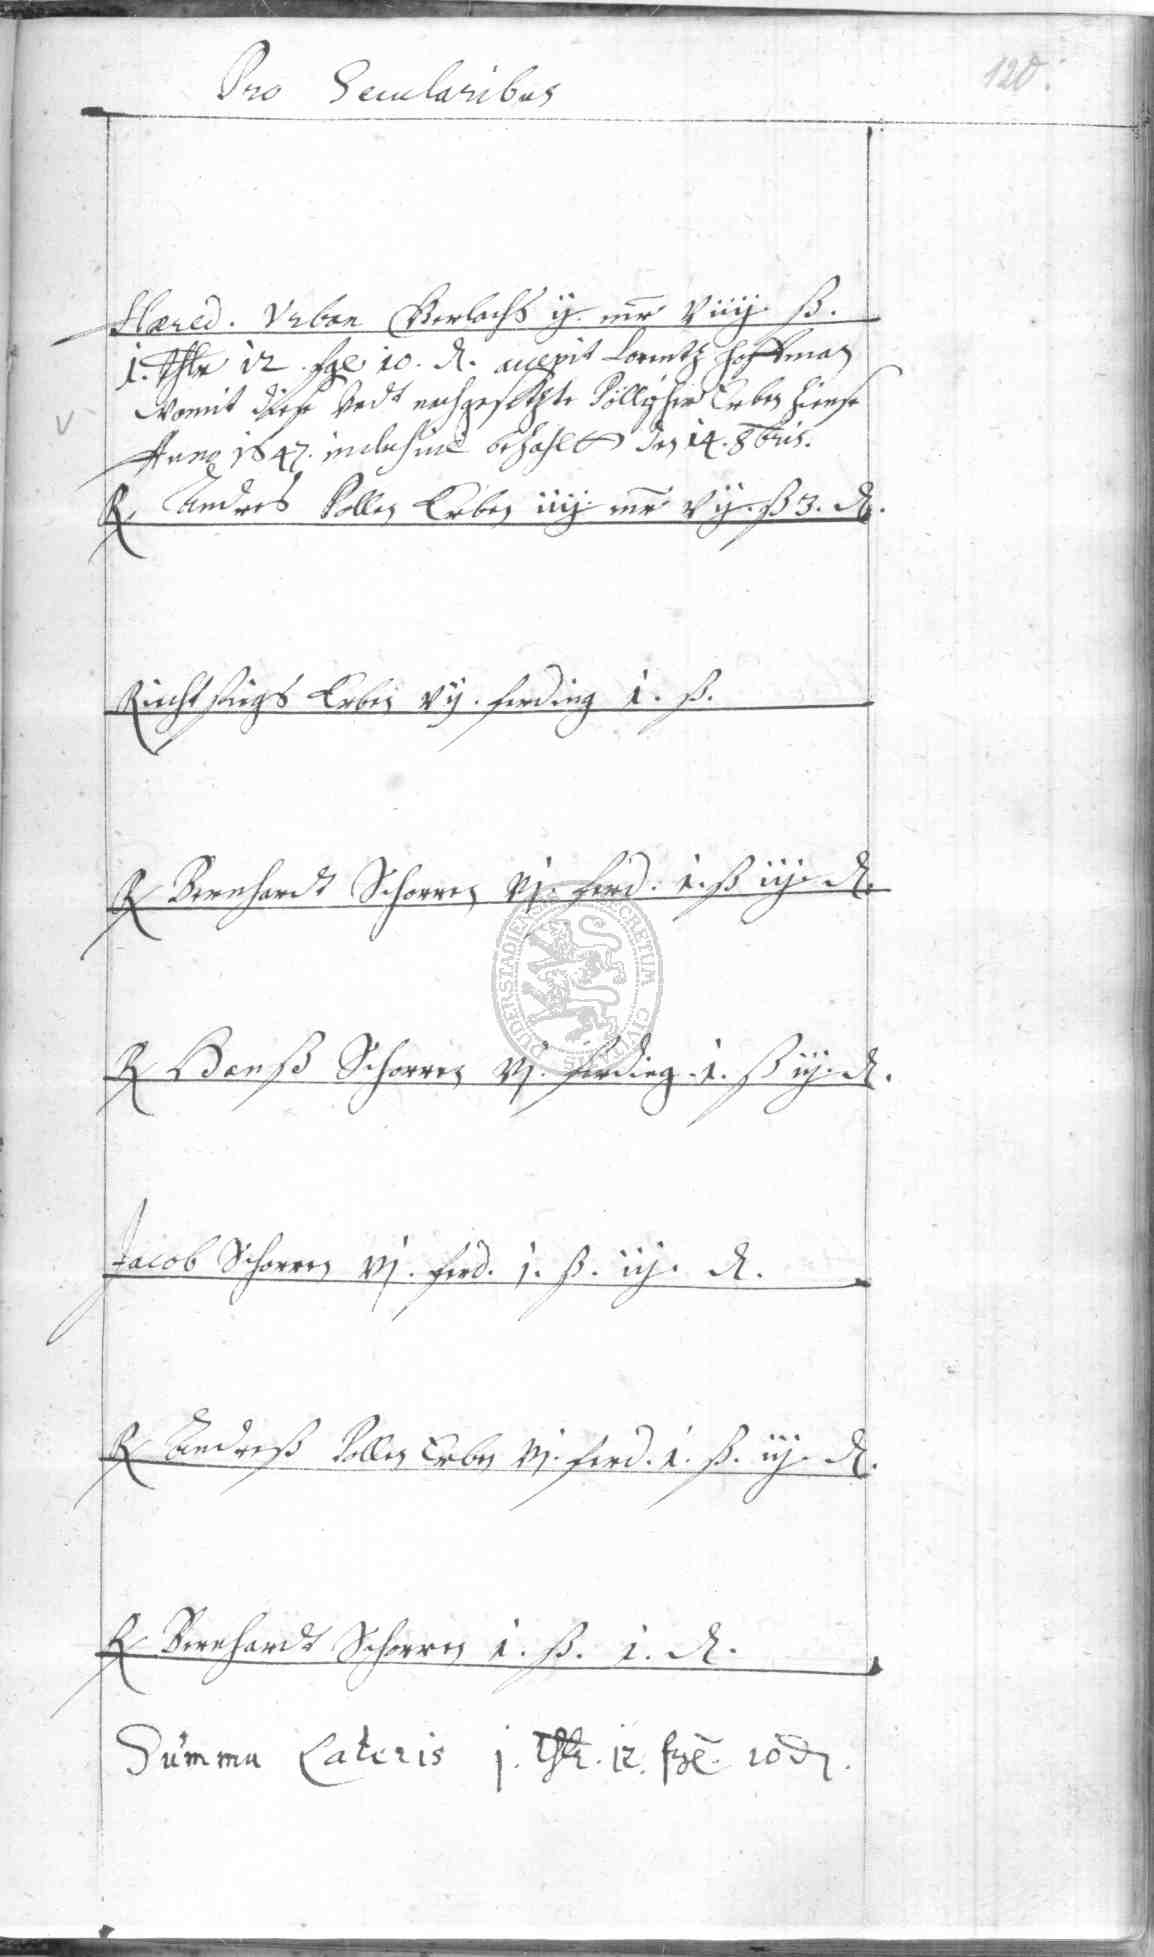 Pro Secularibus
120.
Hæred. Urban Gerlachs ij. mr viiij. ß.
1. thlr 12 sgl. 10. d. accepit Lorentz Hoffman
Womit diese nachgesetzte Erben
Anno 1647. inclusive bezahlt den 14. 8bris.
Andres Pollen Erben iiij mr vij. ß 3. d.
Erben vij. ferding 1. ß.
Bernhardt Schorren vj. ferd. 1. ß iij. d.
Hanß Schorren vj. ferding. 1. ß iij. d.
Jacob Schorren vj. ferd. j. ß. iij. d.
Andreß Pollen Erben vj. ferd. 1. ß. iij. d.
Bernhardt Schorren 1. ß. 1. d.
Summa Lateris j. thlr. 12. sgl. 10 d.
DUDERSTADIENSIS SECRETUM CIVITATIS